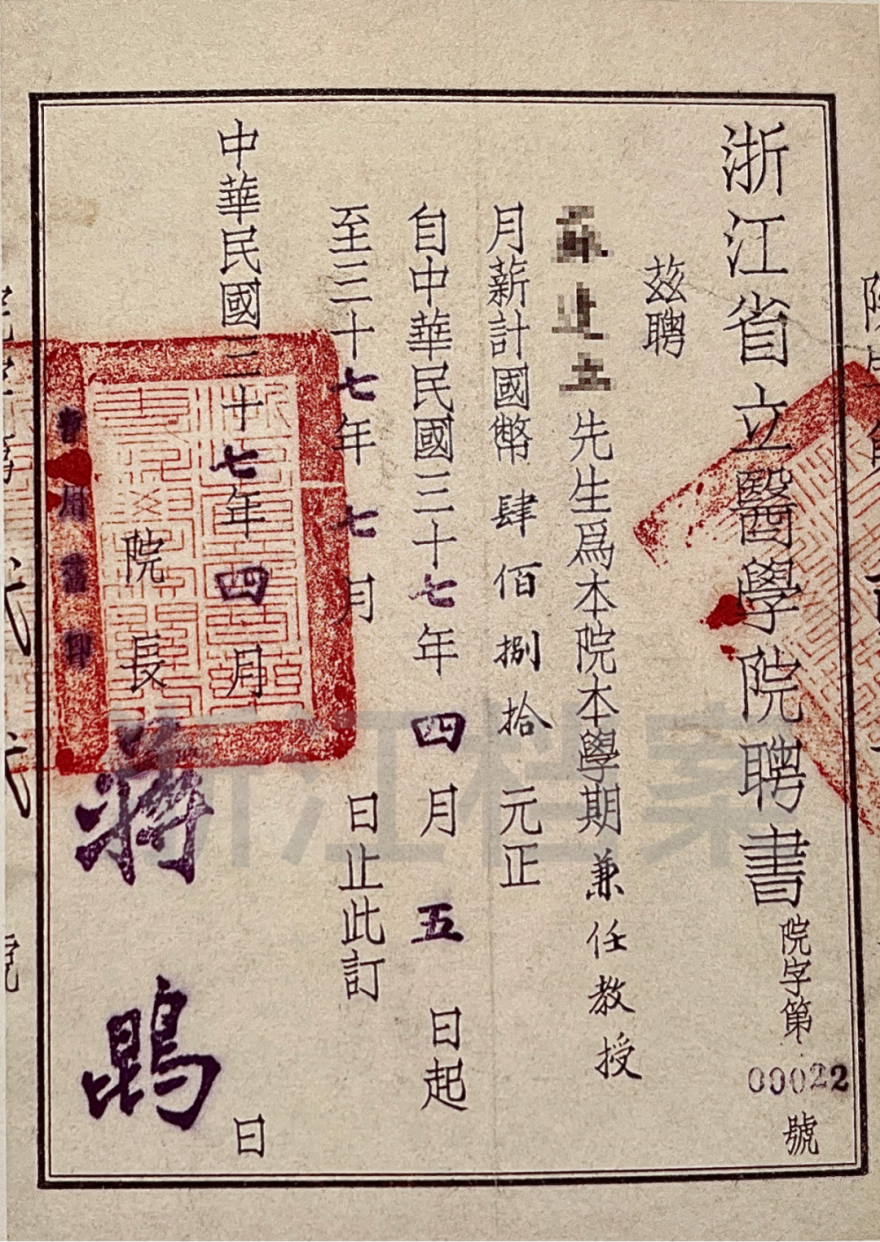 浙江省立醫學院聘書
院字第00022號
茲聘
先生爲本院本學期兼任教授
月薪計國幣肆佰捌拾元正
自中華民國三十七年四月五日起
至三十七年七月 日止此訂
中華民國三十七年四月 日
院長 蔣鵾
浙江档案